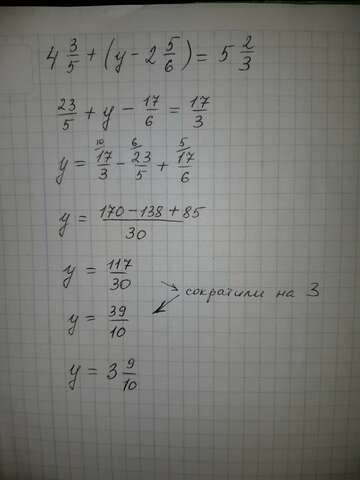 4 3/5 + (y - 2 5/6) = 5 2/3
23/5 + y - 17/6 = 17/3
y = 10 17/3 - 6 23/5 + 5 17/6
y = 170 - 138 + 85 / 30
y = 117/30
сократили на 3
y = 39/10
y = 3 9/10